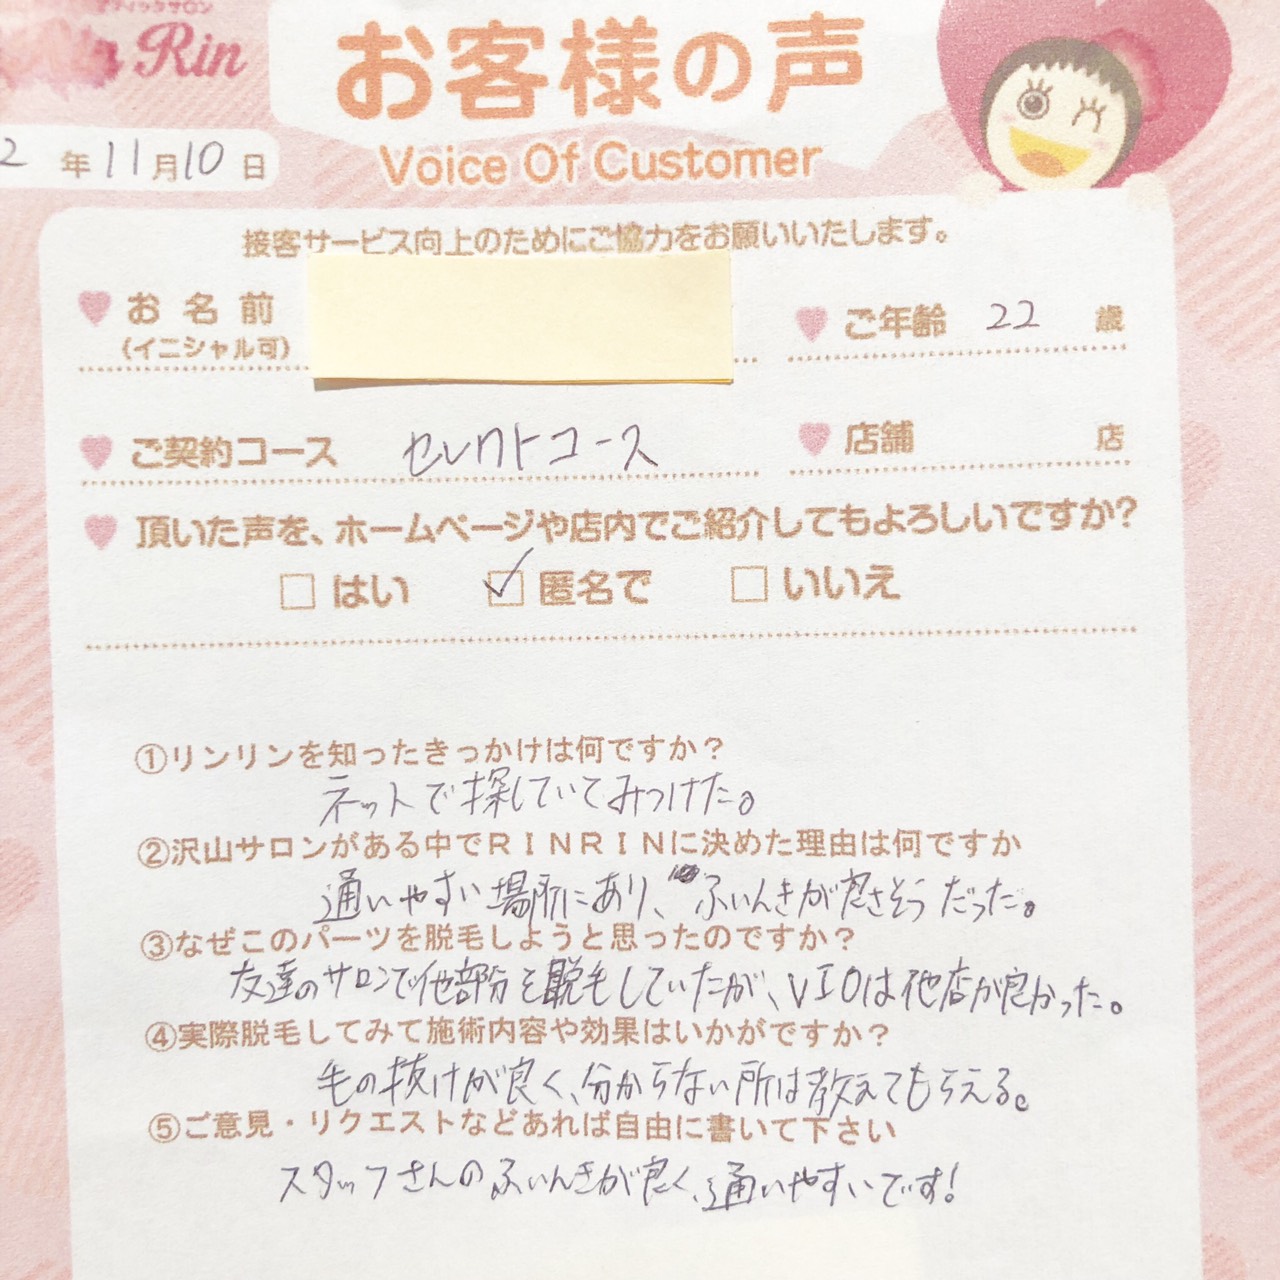 ティックサロン
Rin
お客様の声
Voice Of Customer
2年11月10日
接客サービス向上のためにご協力をお願いいたします。
お名前
(イニシャル可)
ご年齢 22 歳
ご契約コース セレクトコース
店舗 店
頂いた声を、ホームページや店内でご紹介してもよろしいですか?
□はい ☑匿名で □いいえ
①リンリンを知ったきっかけは何ですか？
ネットで探していてみつけた。
②沢山サロンがある中でＲＩＮＲＩＮに決めた理由は何ですか
通いやすい場所にあり、ふいんきが良さそうだった。
③なぜこのパーツを脱毛しようと思ったのですか？
友達のサロンで他部分を脱毛していたが、VIOは他店が良かった。
④実際脱毛してみて施術内容や効果はいかがですか？
毛の抜けが良く、分からない所は教えてもらえる。
⑤ご意見・リクエストなどあれば自由に書いて下さい
スタッフさんのふいんきが良く、通いやすいです!